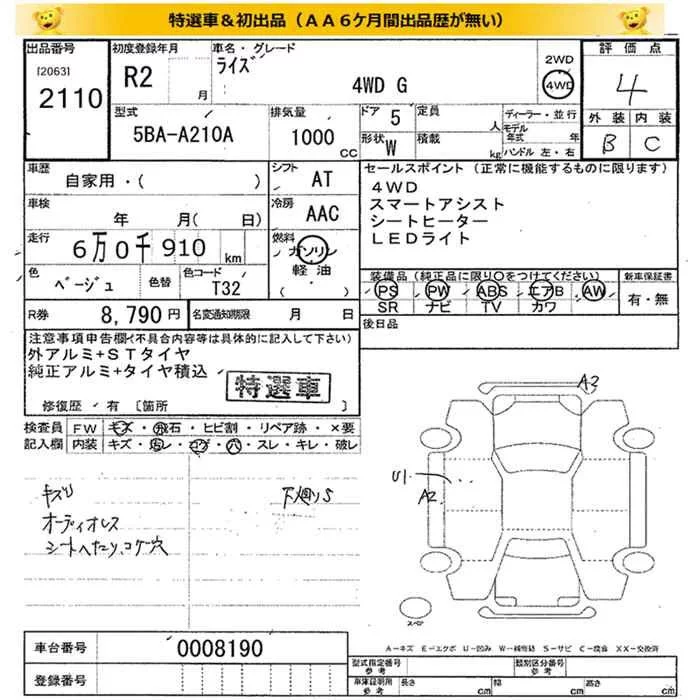 特選車＆初出品（ＡＡ６ケ月間出品歴が無い）
出品番号
[2063]
2110
初度登録年月
R2
月
車名・グレード
ライズ
4WD G
2WD
4WD
評価点
4
外装 内装
B C
型式
5BA-A210A
排気量
1000
CC
ドア
5
定員
人
形状
W
積載
kg
ディーラー・並行
モデル年式 年
ハンドル 左・右
車歴
自家用・( )
シフト
AT
車検
年 月( 日)
冷房
AAC
走行
6万0千910
km
燃料
ガソリン
軽油
( )
色
ベージュ
色替
色コード
T32
R券
8,790円
名変通知期限
月 日
セールスポイント（正常に機能するものに限ります）
４ＷＤ
スマートアシスト
シートヒーター
ＬＥＤライト
装備品（純正品に限り○をつけてください）
PS PW ABS エアB AW
SR ナビ TV カワ
新車保証書
有・無
後日品
注意事項申告欄（不具合内容等は具体的に記入して下さい）
外アルミ+ＳＴタイヤ
純正アルミ+タイヤ積込
特選車
修復歴 有 [箇所 ]
検査員記入欄
FW キズ・飛石・ヒビ割・リペア跡・×要
内装 キズ・汚レ・コゲ・穴・スレ・キレ・破レ
キズり
オーディオレス
シートへたり、コゲ穴
下廻りS
A2
U1
A2
スペア
A－キズ E－エクボ U－凹み W－補修跡 S－サビ C－腐食 XX－交換済
車台番号
0008190
登録番号
型式指定番号
参考
類別区分番号
参考
車庫証明用
参考
長さ
cm
幅
cm
高さ
cm